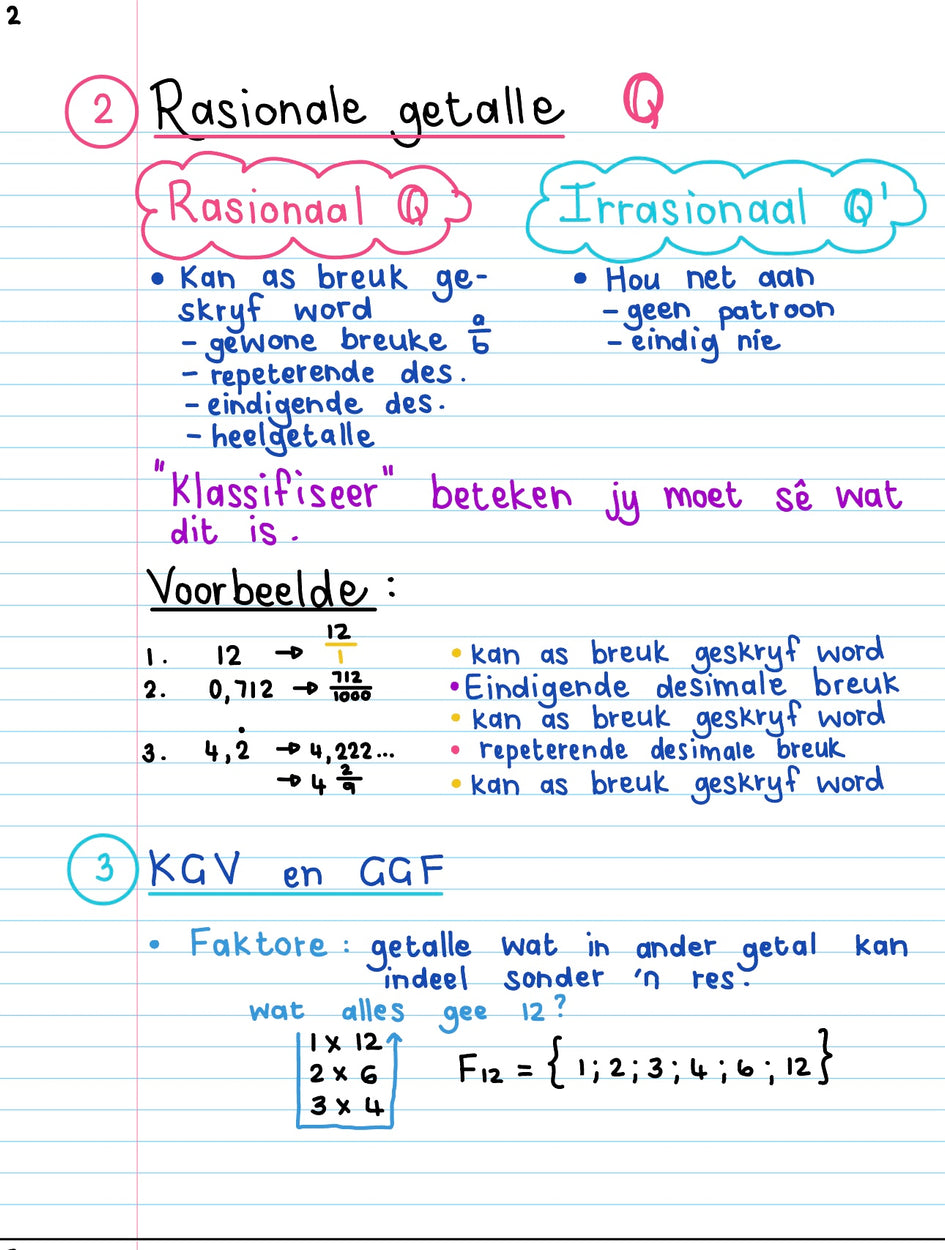 2
2 Rasionale getalle ℚ
Rasionaal ℚ
Irrasionaal ℚ'
• Kan as breuk ge-
skryf word
- gewone breuke a/b
- repeterende des.
- eindigende des.
- heelgetalle
• Hou net aan
- geen patroon
- eindig nie
"Klassifiseer" beteken jy moet sê wat
dit is.
Voorbeelde:
1. 12 → 12/1 • kan as breuk geskryf word
2. 0,712 → 712/1000 • Eindigende desimale breuk
• kan as breuk geskryf word
3. 4,2̇ → 4,222... • repeterende desimale breuk
→ 4 2/9 • kan as breuk geskryf word
3 KGV en GGF
• Faktore: getalle wat in ander getal kan
indeel sonder 'n res.
wat alles gee 12?
1 x 12
2 x 6
3 x 4
F₁₂ = {1; 2; 3; 4; 6; 12}